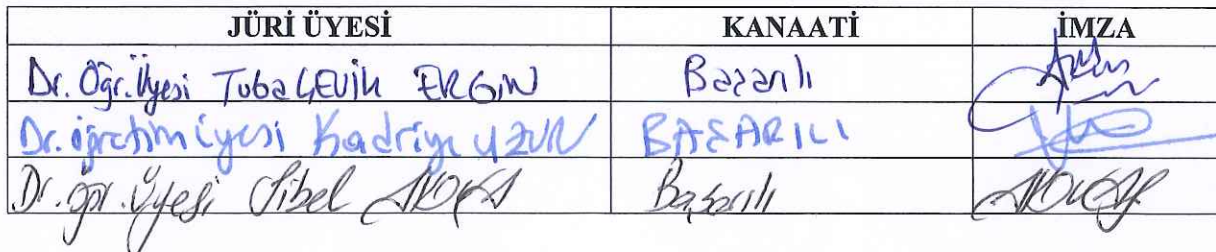 JÜRİ ÜYESİ KANAATİ İMZA
Dr. Öğr. Üyesi Tuba ÇEVİK ERGİN Başarılı
Dr. öğretim üyesi Kadriye UZUN BAŞARILI
Dr. öğr. Üyesi Sibel Başarılı